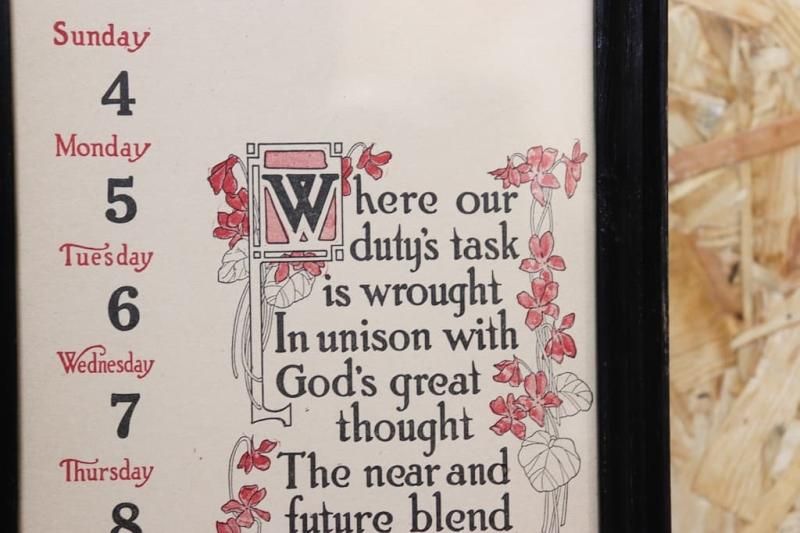 Sunday
4
Monday
5
Tuesday
6
Wednesday
7
Thursday
8
Where our
duty's task
is wrought
In unison with
God's great
thought
The near and
future blend